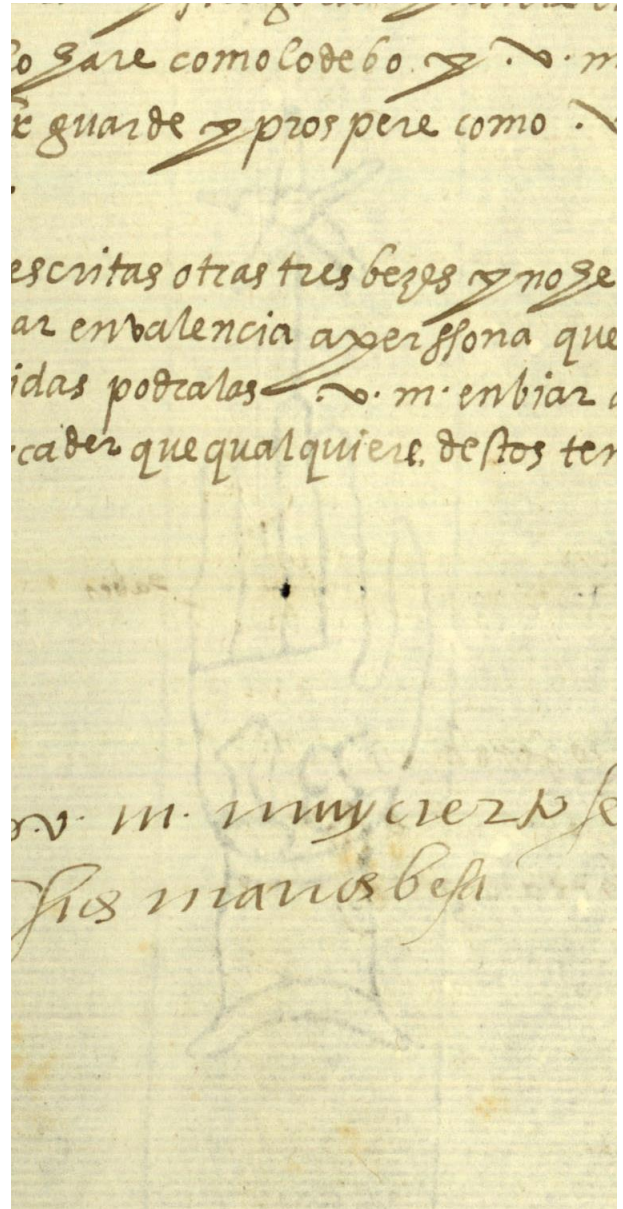 lo hare como lo debo y . v. m
guarde y prospere como . v
escritas otras tres bezes y no se
ar en valencia a perssona que
idas podralas . v. m. enbiar a
cader que qualquiere destos ten
v. m. muy cierto se
sus manos besa